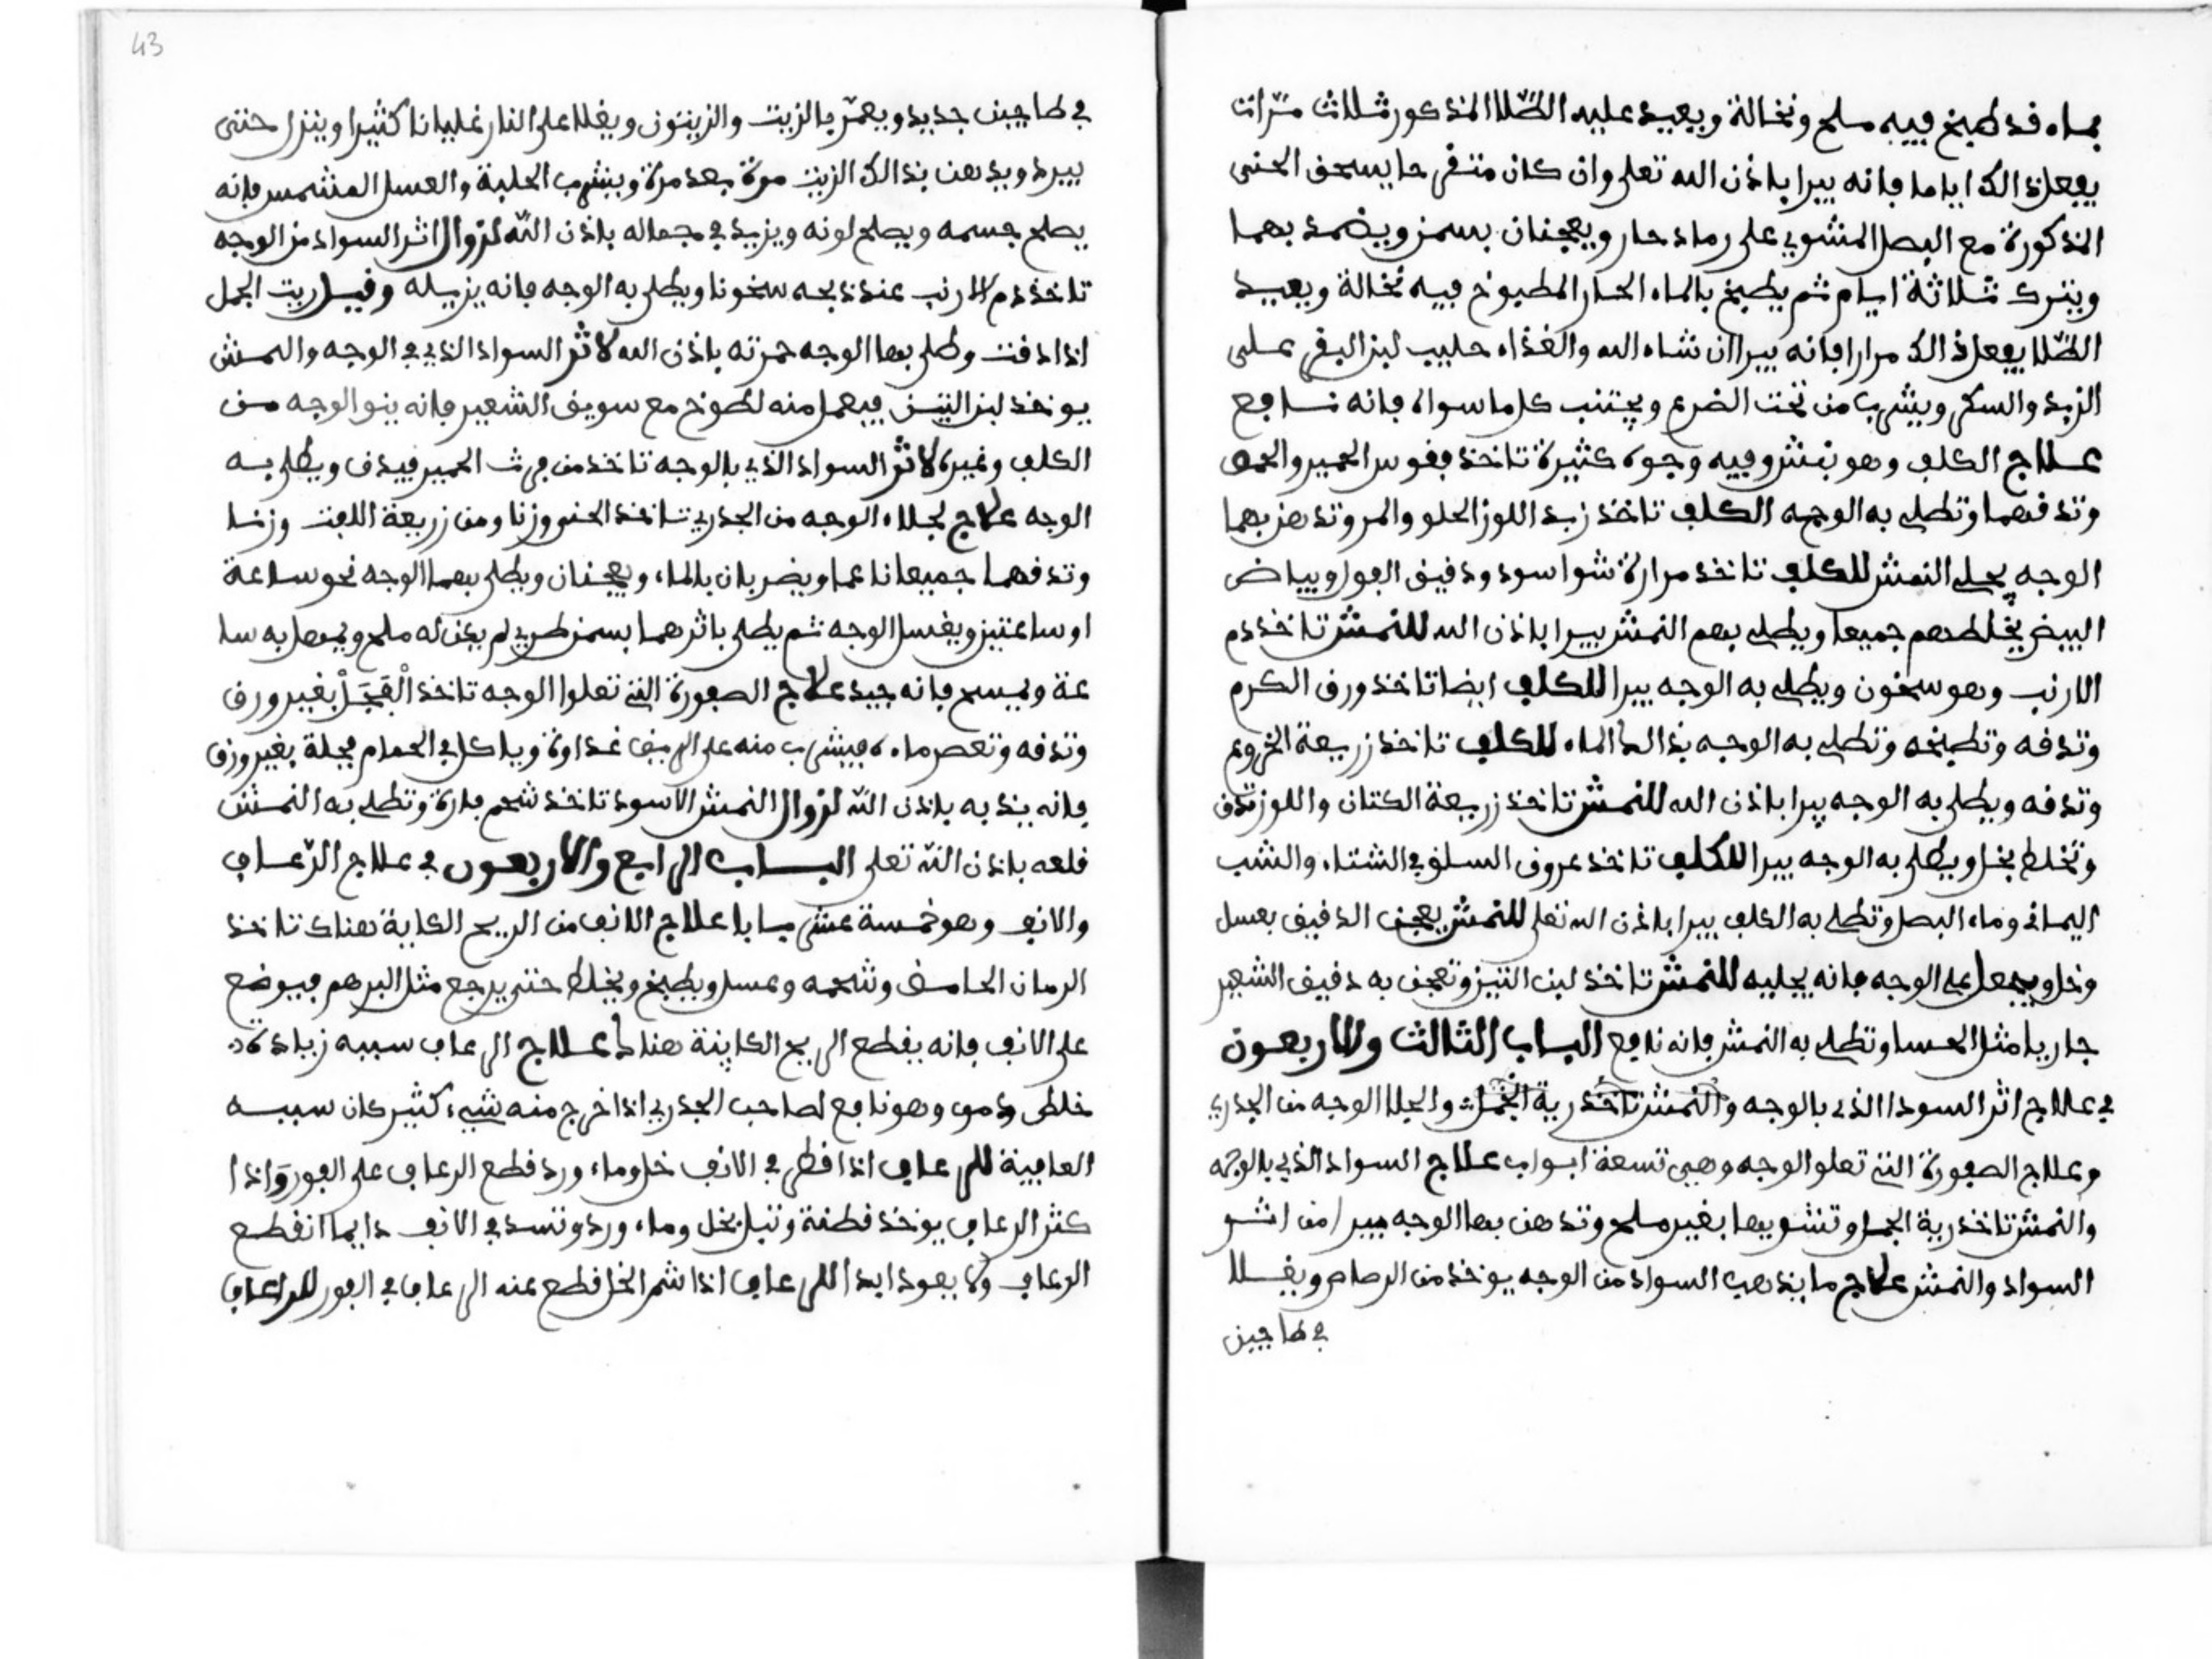 بماء قد طبخ فيه ملح ونخالة ويعيد عليه الطلا المذكور ثلاث مرات
يفعل ذالك اياما فانه يبرا باذن الله تعلى وان كان متقرحا يسحق الخنثى
المذكورة مع البصل المشوي على رماد حار ويعجنان بسمن ويضمد بهما
ويترك ثلاثة ايام ثم يطبخ بالماء الحار المطبوخ فيه نخالة ويعيد
الطلا يفعل ذالك مرارا فانه يبرا ان شاء الله والغذاء حليب لبن البقر على
الزبد والسكر ويشرب من تحت الضرع ويجتنب كل ما سواه فانه نافع
علاج الكلف وهو نمش وفيه وجوه كثيرة تاخذ فقوس الحمير والحمص
وتدقهما وتطلى به الوجه الكلف تاخذ زبد اللوز الحلو والمر وتدهن بهما
الوجه يجلي النمش للكلف تاخذ مرارة شوا اسود ودقيق الفول وبياض
البيض يخلطهم جميعا ويطلى بهم النمش يبرا باذن الله للنمش تاخذ دم
الارنب وهو سخون ويطلى به الوجه يبرا للكلف ايضا تاخذ ورق الكرم
وتدقه وتطبخه وتطلى به الوجه بذالك الماء للكلف تاخذ زريعة الخروع
وتدقه ويطلى به الوجه يبرا باذن الله للنمش تاخذ زريعة الكتان واللوز تدق
وتخلط بخل ويطلى به الوجه يبرا للكلف تاخذ عروق السلق في الشتاء والشب
اليماني وماء البصل وتطلى به الكلف يبرا باذن الله تعلى للنمش يعجن الدقيق بعسل
وخل ويجعل على الوجه فانه يجليه للنمش تاخذ لبن التين وتعجن به دقيق الشعير
جاريا مثل الحسا وتطلى به النمش فانه نافع الباب الثالث والاربعون
في علاج اثر السودا الذي بالوجه والنمش تاخذ رية الجمل والجلا الوجه من الجدري
وعلاج الصفورة التي تعلو الوجه وهي تسعة ابواب علاج السواد الذي بالوجه
والنمش تاخذ رية الجمل وتشويها بغير ملح وتدهن بها الوجه يبرا من اثر
السواد والنمش علاج ما يذهب السواد من الوجه يوخذ من الرصاص ويغلا
في طاجين
43
في طاجين جديد ويعمر بالزيت والزيتون ويغلا على النار غليانا كثيرا وينزل حتى
يبرد ويدهن بذالك الزيت مرة بعد مرة ويشرب الحلبة والعسل المشمس فانه
يصلح جسمه ويصلح لونه ويزيد في جماله باذن الله لزوال اثر السواد من الوجه
تاخذ دم الارنب عند ذبحه سخونا ويطلى به الوجه فانه يزيله وقيل ريت الجمل
اذا دقت وطلي بها الوجه حمرته باذن الله لاثر السواد الذي في الوجه والنمش
يوخذ لبن التين فيعمل منه لطوخ مع سويق الشعير فانه ينو الوجه من
الكلف وغيره لاثر السواد الذي بالوجه تاخذ من فرث الحمير فيدق ويطلى به
الوجه علاج لجلاء الوجه من الجدري تاخذ الخنثى وزنا ومن زريعة اللفت وزنا
وتدقهما جميعا ناعما ويضربان بالماء ويعجنان ويطلى بهما الوجه نحو ساعة
او ساعتين ويغسل الوجه ثم يطلى باثرهما بسمن طري لم يكن له ملح ويمهل به سا
عة ويمسح فانه جيد علاج الصفورة التي تعلوا الوجه تاخذ الفجل بغير ورق
وتدقه وتعصر ماءه فيشرب منه على الريق غداوة وياكل في الحمام فجلة بغير ورق
فانه يذبه باذن الله لزوال النمش الاسود تاخذ شحم فارة وتطلى به النمش
قلعه باذن الله تعلى الباب الرابع والاربعون في علاج الرعاف
والانف وهو خمسة عشر بابا علاج الانف من الريح الكاية هناك تاخذ
الرمان الحامض وشحمه وعسل ويطبخ ويخلط حتى يرجع مثل المرهم فيوضع
على الانف فانه يقطع الريح الكاينة هناك علاج الرعاف سببه زيادة د
خلط دموي وهو نافع لصاحب الجدري اذا خرج منه شيء كثير كان سببه
العافية للرعاف اذا قطر في الانف خل وماء ورد قطع الرعاف على الفور واذا
كثر الرعاف يوخذ قطنة وتبل بخل وماء ورد وتسد في الانف دايما انقطع
الرعاف ولا يعود ابدا للرعاف اذا شم الخل قطع عنه الرعاف في الفور للرعاف